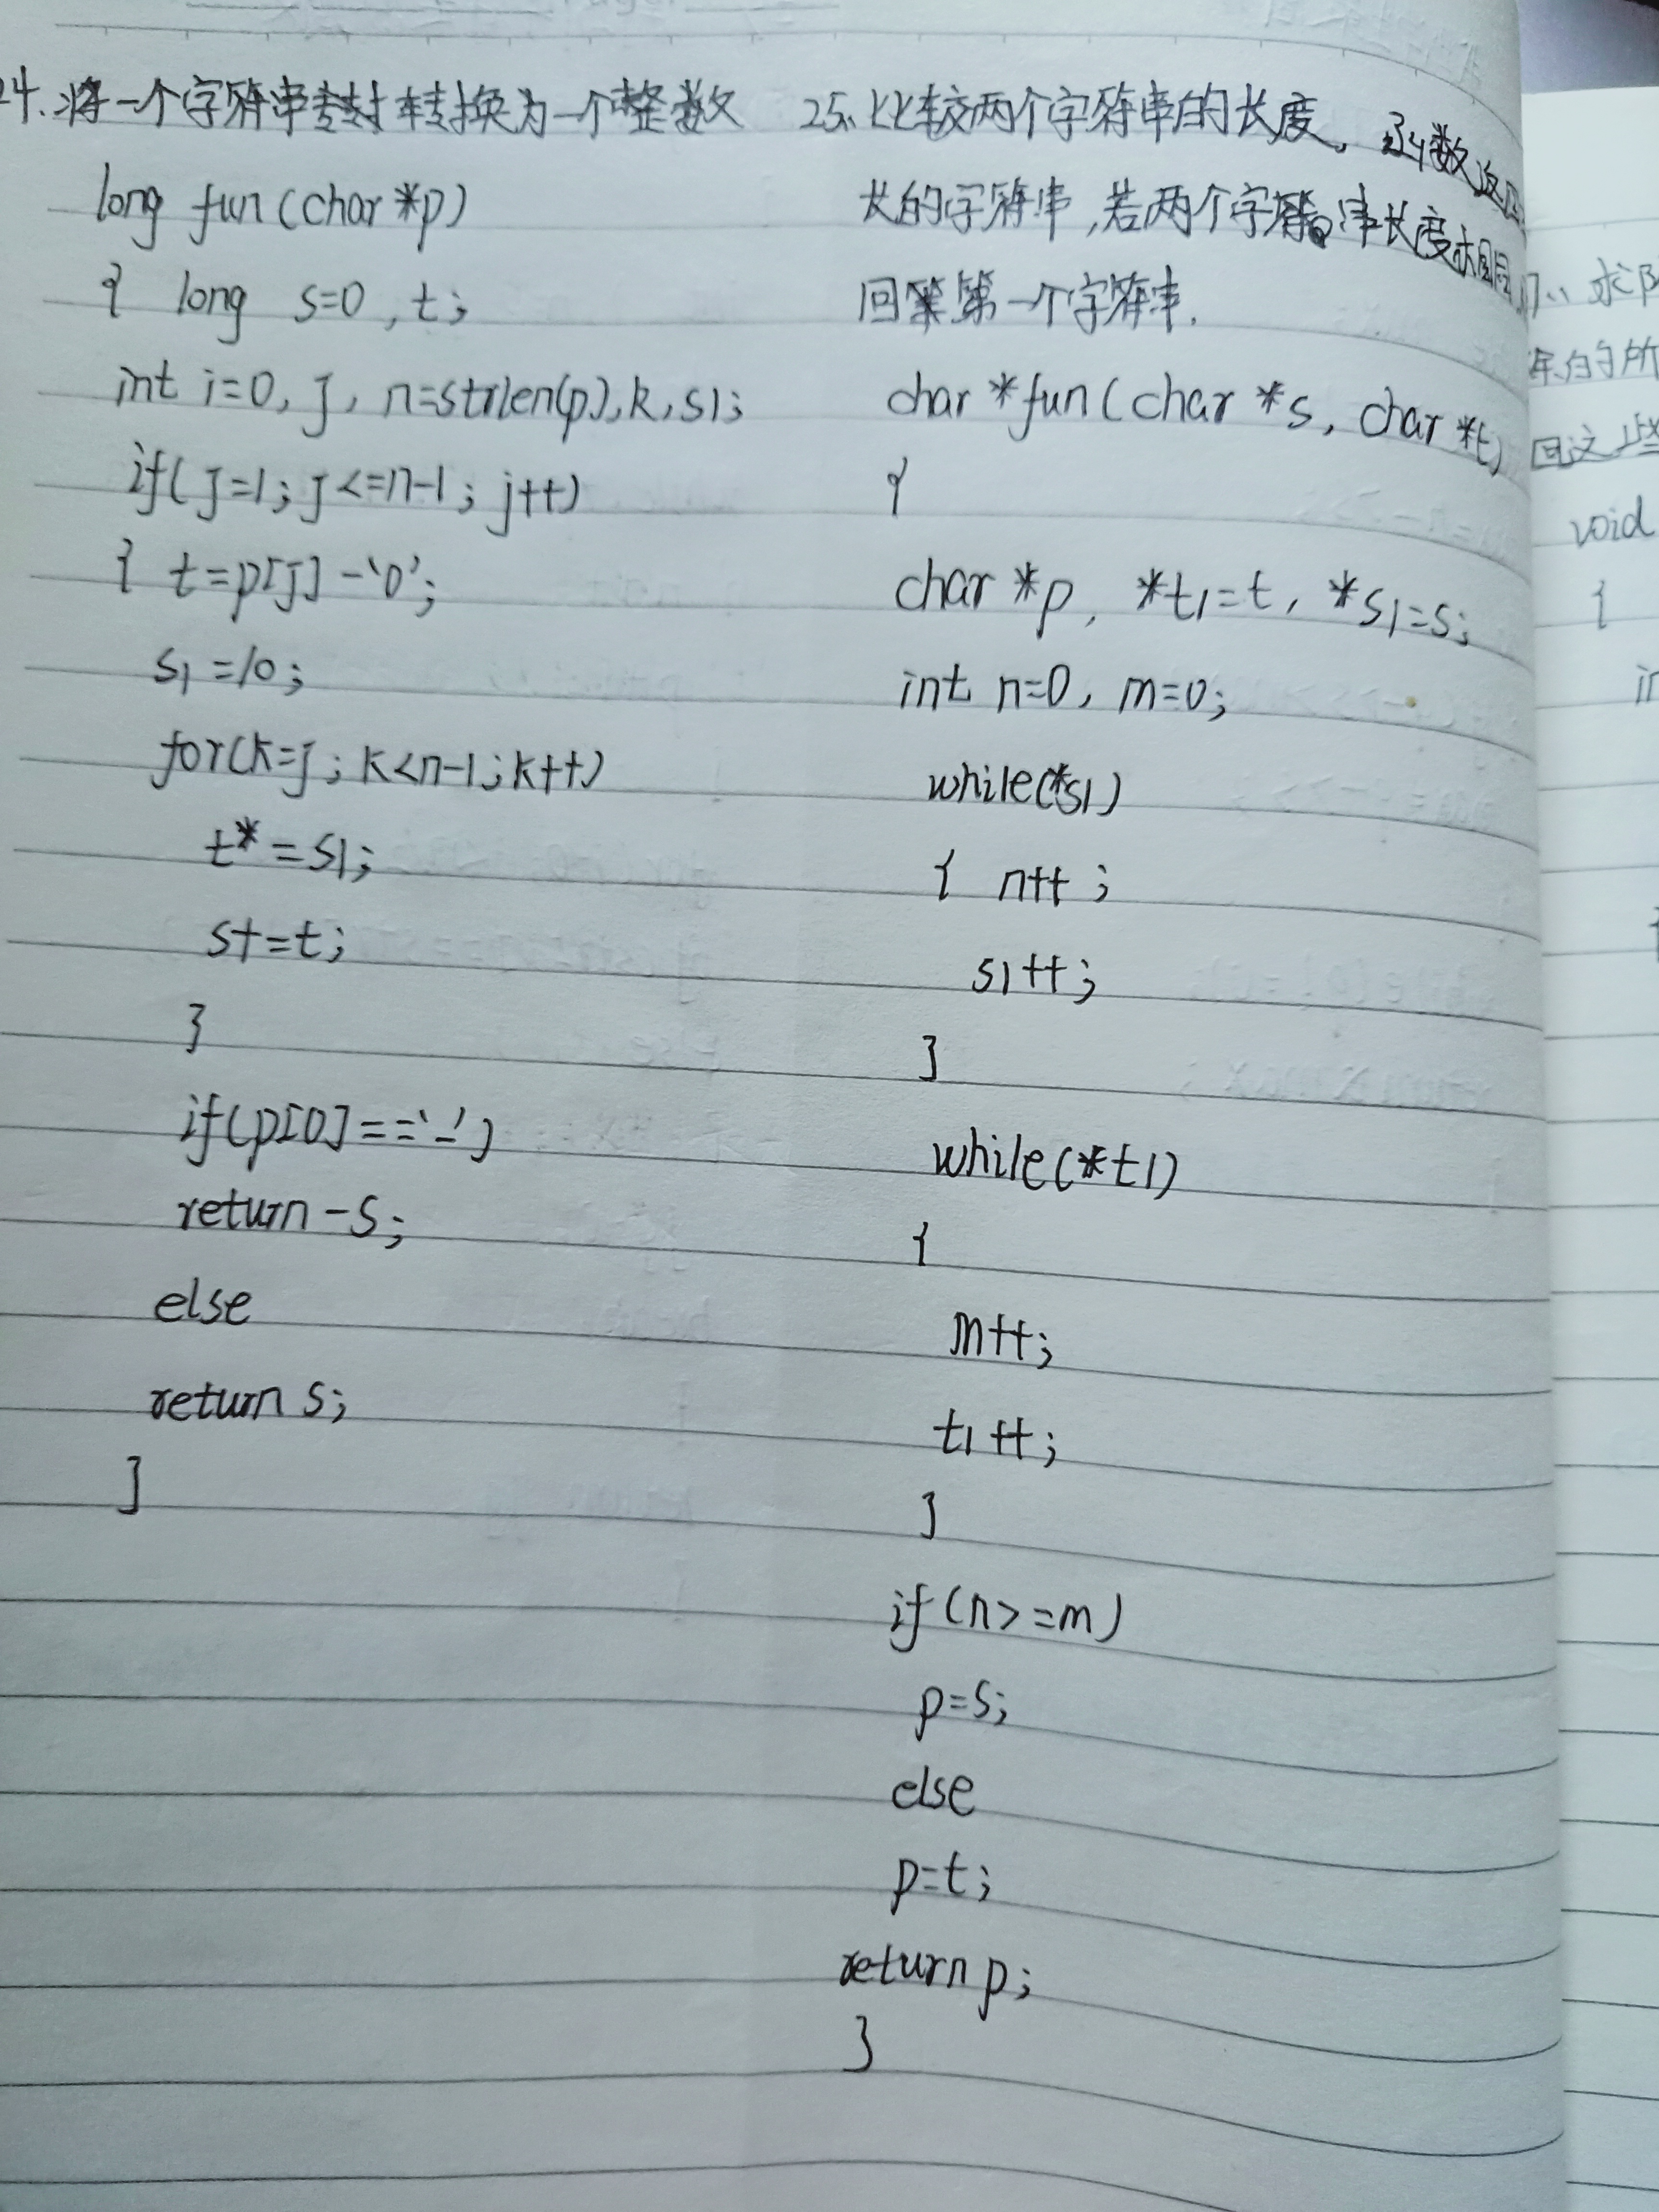 24.将一个字符串转换为一个整数
long fun(char*p)
{ long s=0,t;
int i=0, j, n=strlen(p),k,s1;
if(j=1; j<=n-1; j++)
{ t=p[j]-'0';
s1=10;
for(k=j; k<n-1; k++)
t*=s1;
s+=t;
}
if(p[0]=='-')
return-s;
else
return s;
}
25.比较两个字符串的长度,函数返回
长的字符串,若两个字符串长度相同
回第一个字符串.
char *fun(char *s, char *t)
{
char *p, *t1=t, *s1=s;
int n=0, m=0;
while(*s1)
{ n++;
s1++;
}
while(*t1)
{
m++;
t1++;
}
if(n>=m)
p=s;
else
p=t;
return p;
}
求
年的所
回这些
void
{
in